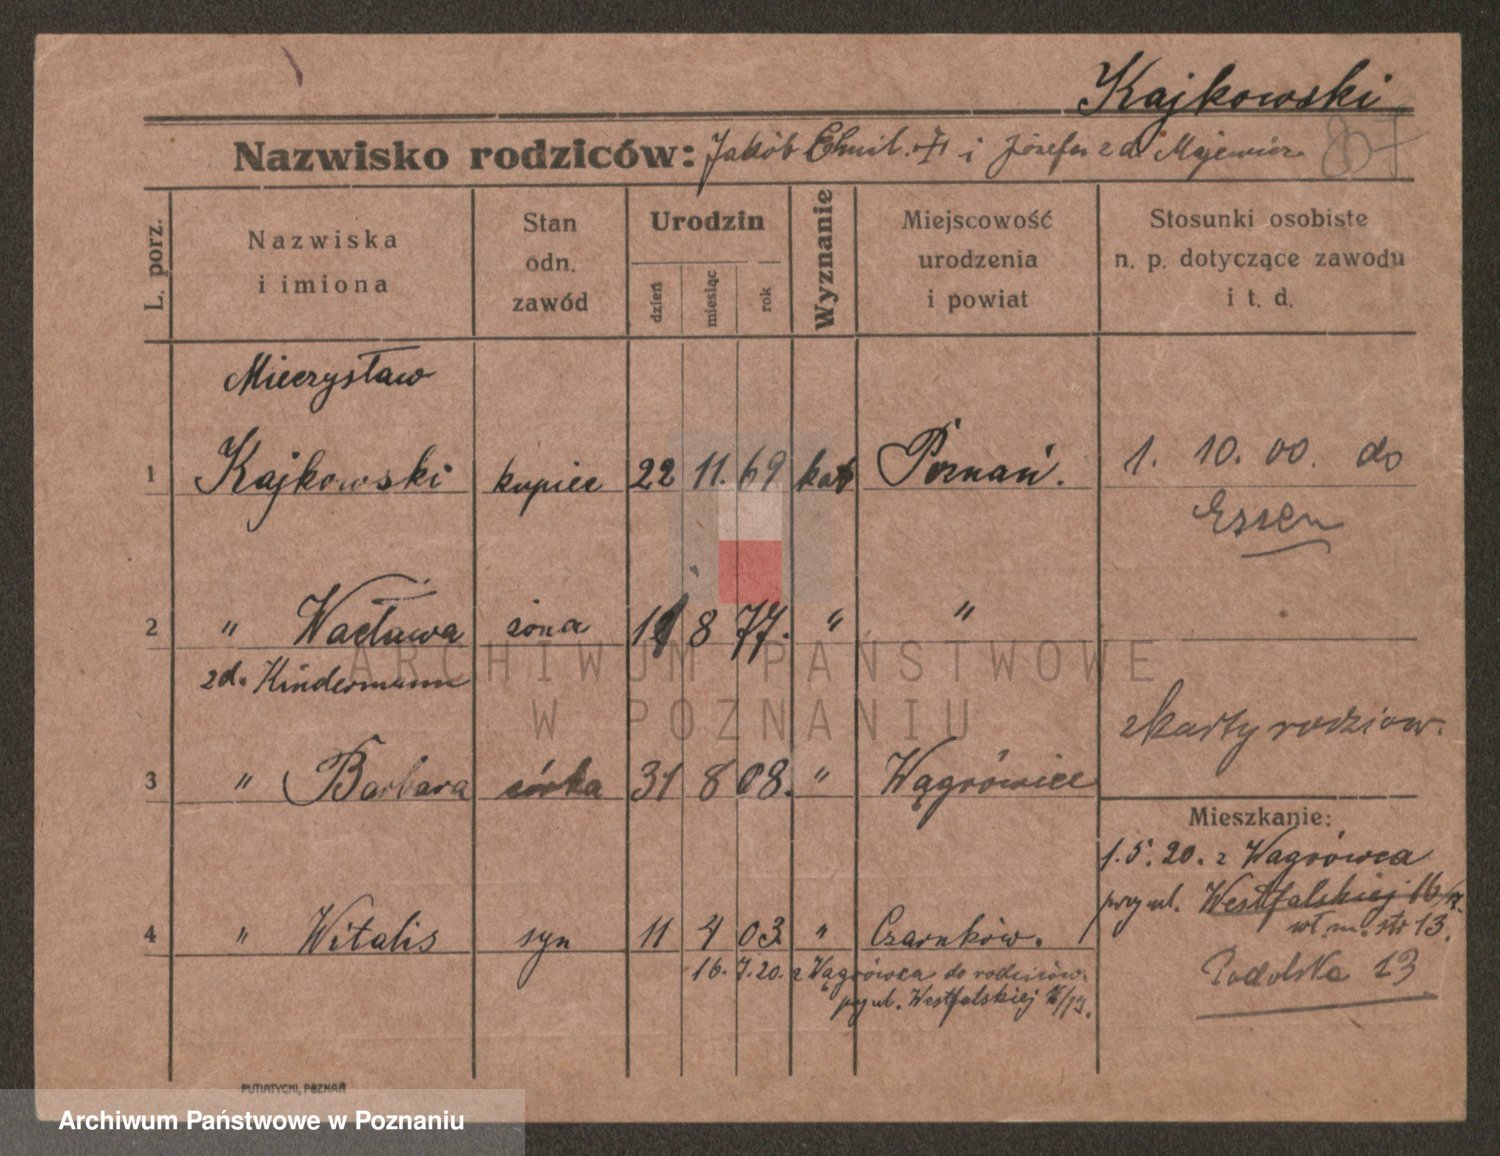 Kajkowski
Nazwisko rodziców: Jakób i Józefa zd. Majewicz
L. porz.
Nazwiska i imiona
Stan odn. zawód
Urodzin
dzień
miesiąc
rok
Wyznanie
Miejscowość urodzenia i powiat
Stosunki osobiste n. p. dotyczące zawodu i t. d.
Mieczysław
1 Kajkowski kupiec 22 11. 69 kat Poznań. 1. 10. 00. do
Essen
2 " Wacława żona 8 77. " "
zd. Kindermann
z karty rodziców.
3 " Barbara córka 31 8 08. " Wągrówiec
Mieszkanie:
1. 5. 20. z Wągrówca
przy ul. Westfalskiej 16/17.
wł. m. str 13.
4 " Witalis syn 11 4 03. " Czarnków.
16. 7. 20. z Wągrówca do rodziców
przy ul. Westfalskiej 16/17.
Podolska 13
PUTIATYCKI, POZNAŃ
ARCHIWUM PAŃSTWOWE
W POZNANIU
Archiwum Państwowe w Poznaniu